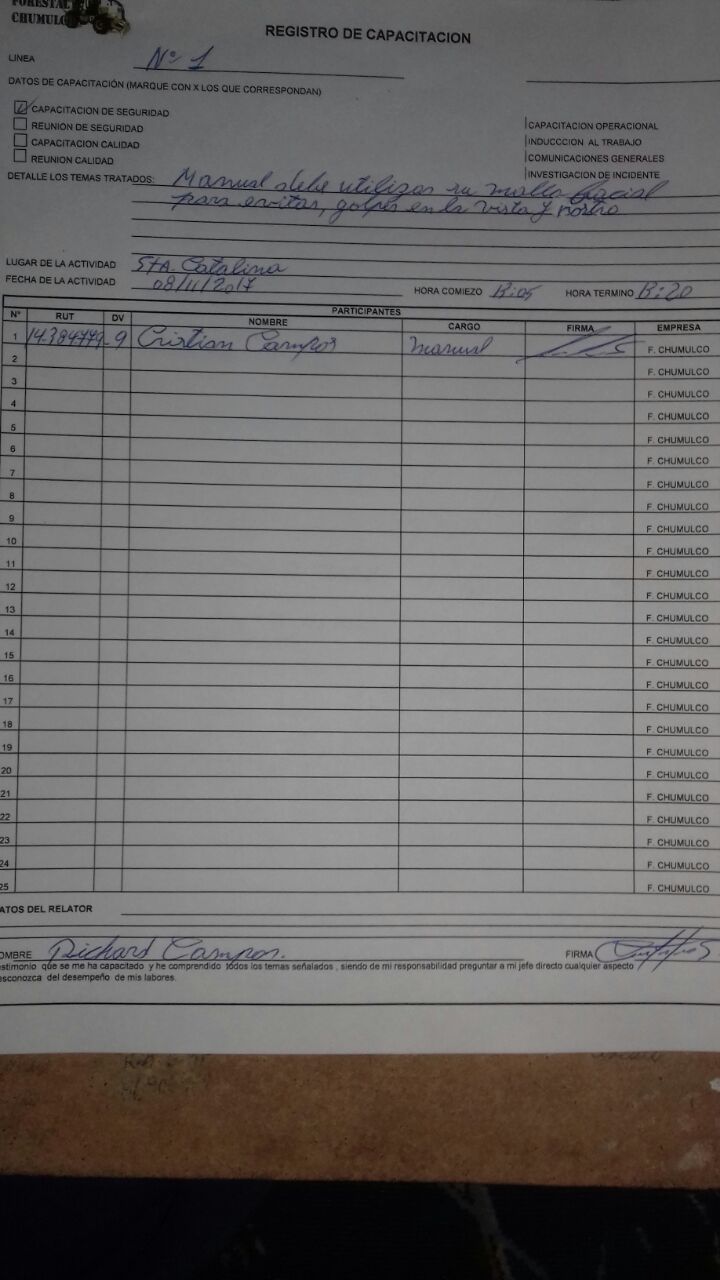 FORESTAL
CHUMULCO
REGISTRO DE CAPACITACION
LINEA Nº 1
DATOS DE CAPACITACIÓN (MARQUE CON X LOS QUE CORRESPONDAN)
CAPACITACION DE SEGURIDAD
REUNION DE SEGURIDAD
CAPACITACION CALIDAD
REUNION CALIDAD
CAPACITACION OPERACIONAL
INDUCCCION AL TRABAJO
COMUNICACIONES GENERALES
INVESTIGACION DE INCIDENTE
DETALLE LOS TEMAS TRATADOS: Manual debe utilizar su malla facial
para evitar, golpes en la vista y rostro
LUGAR DE LA ACTIVIDAD STA. Catalina
FECHA DE LA ACTIVIDAD 08/11/2017 HORA COMIEZO HORA TERMINO
PARTICIPANTES
N° RUT DV NOMBRE CARGO FIRMA EMPRESA
1 9 Cristian Campos manual F. CHUMULCO
2 F. CHUMULCO
3 F. CHUMULCO
4 F. CHUMULCO
5 F. CHUMULCO
6 F. CHUMULCO
7 F. CHUMULCO
8 F. CHUMULCO
9 F. CHUMULCO
10 F. CHUMULCO
11 F. CHUMULCO
12 F. CHUMULCO
13 F. CHUMULCO
14 F. CHUMULCO
15 F. CHUMULCO
16 F. CHUMULCO
17 F. CHUMULCO
18 F. CHUMULCO
19 F. CHUMULCO
20 F. CHUMULCO
21 F. CHUMULCO
22 F. CHUMULCO
23 F. CHUMULCO
24 F. CHUMULCO
25 F. CHUMULCO
ATOS DEL RELATOR
OMBRE Richard Campos. FIRMA
estimonio que se me ha capacitado y he comprendido todos los temas señalados , siendo de mi responsabilidad preguntar a mi jefe directo cualquier aspecto
esconozca del desempeño de mis labores.